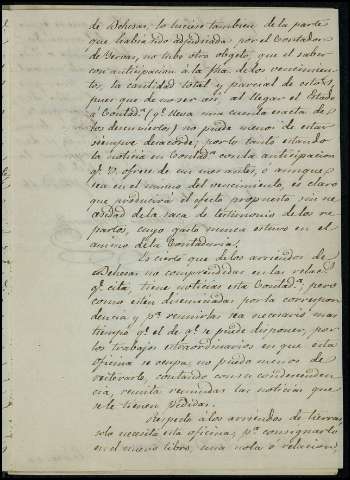 de Dehesas, lo hiciese tambien de la parte
que habia sido adjudicada por el Contador
de Yervas, no tubo otro objeto, que el saber
con anticipacion a la fha. de los vencimien
tos, la cantidad total y parcial de estos,
pues que de no ser asi, al llegar el Estado
á Contadª. (qe. lleva una cuenta exacta de
los documentos) no puede menos de estar
siempre de acorde; por lo tanto estando
la noticia en Contadª. con la anticipacion
qe. V. ofrece de un mes antes, ó aunque
sea en el mismo del vencimiento, es claro
que producirá el efecto propuesto sin ne
cesidad de la saca de testimonio de los re
partos, cuyo gasto nunca estuvo en el
animo de la Contaduria.
Es cierto que de los arriendos de
Dehesas no comprendidas en las relacs.
qe. cita, tiene noticias esta Contadª., pero
como esten diseminadas por la correspon
dencia y pª. reunirlas sea necesario mas
tiempo qe. el de qe. se puede disponer, por
los trabajos extraordinarios en que esta
oficina se ocupa, no puedo menos de
reiterarle, contando con su condescenden
cia, remita reunidas las noticias que
se le tienen pedidas.
Respecto á los arriendos de tierras,
solo necesita esta oficina, pª. consignarlo
en el nuevo libro, una nota ó relacion,